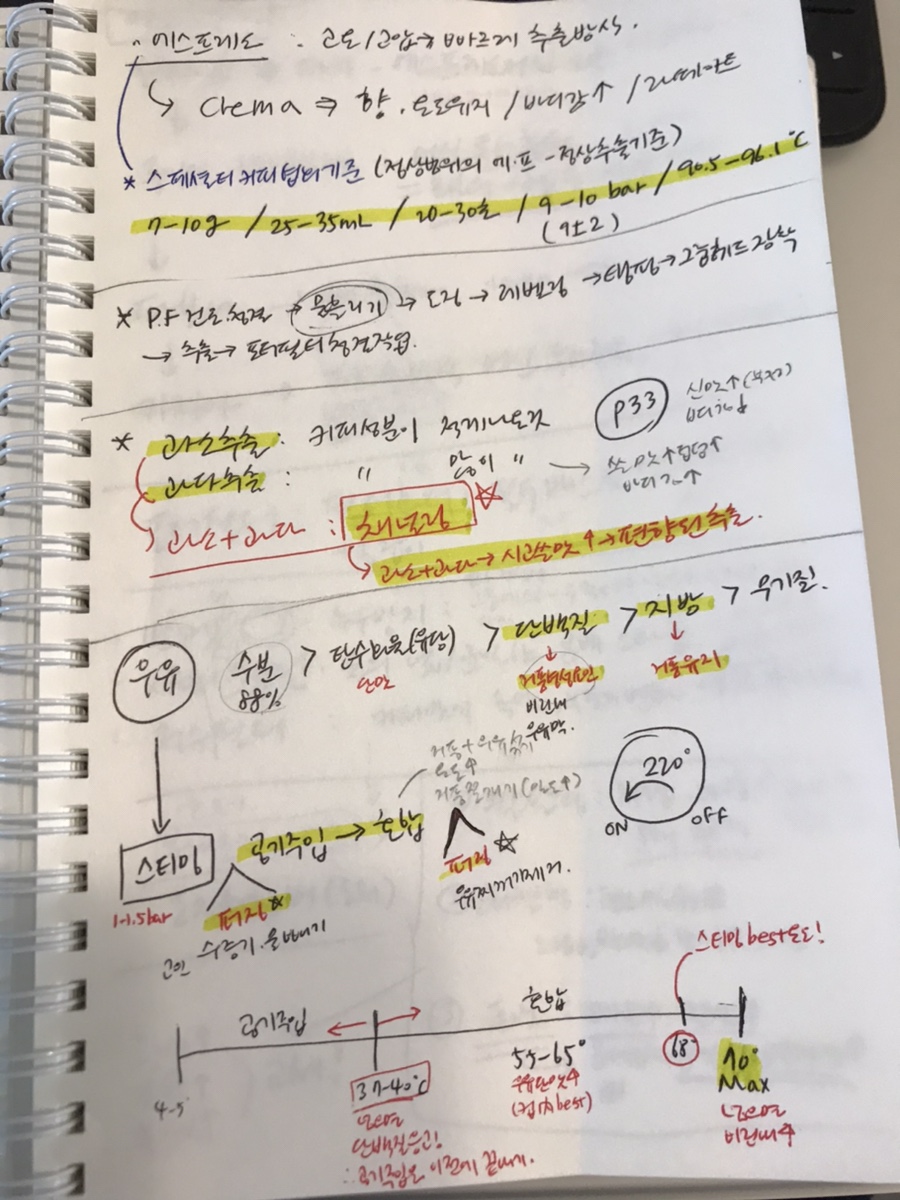 에스프레소 : 고온/고압→빠르게 추출방식.
↳ Crema ⇒ 향. 온도유지 / 바디감↑ / 라떼아트
* 스페셜티커피협회기준 (정상범위의 에.프 - 정상추출기준)
7-10g / 25-35mL / 20-30초 / 9-10 bar / 90.5-96.1℃
(9±2)
* P.F 건조청결 → 물흘리기 → 도징 → 레벨링 → 탬핑 → 그룹헤드장착
→ 추출 → 포터필터청결작업.
p33
신맛↑
* 과소추출 : 커피성분이 적게나온것
과다추출 : " 많이 " → 쓴맛↑ 잡맛↑
바디감↑
과소+과다 : 채널링 ☆
↳ 과소+과다→시고쓴맛↑→편향된추출.
우유 수분 > 탄수화물(유당) > 단백질 > 지방 > 무기질.
88% 단맛 ↓ 거품형성요인 ↓ 거품유지
비린내
우유막.
거품+우유섞기
온도↑
거품쪼개기(온도↑)
220°
ON OFF
스티밍 공기주입 → 혼합
1-1.5bar
퍼징☆
수증기.물빼기
퍼징☆
우유찌꺼기제거.
스티밍best온도!
공기주입 혼합
4-5° 37-40℃ 55-65° 68° 70°
Max
넘으면
단백질응고!
∴ 공기주입은 이전에 끝내기.
우유단맛↑
넘으면
비린내↑